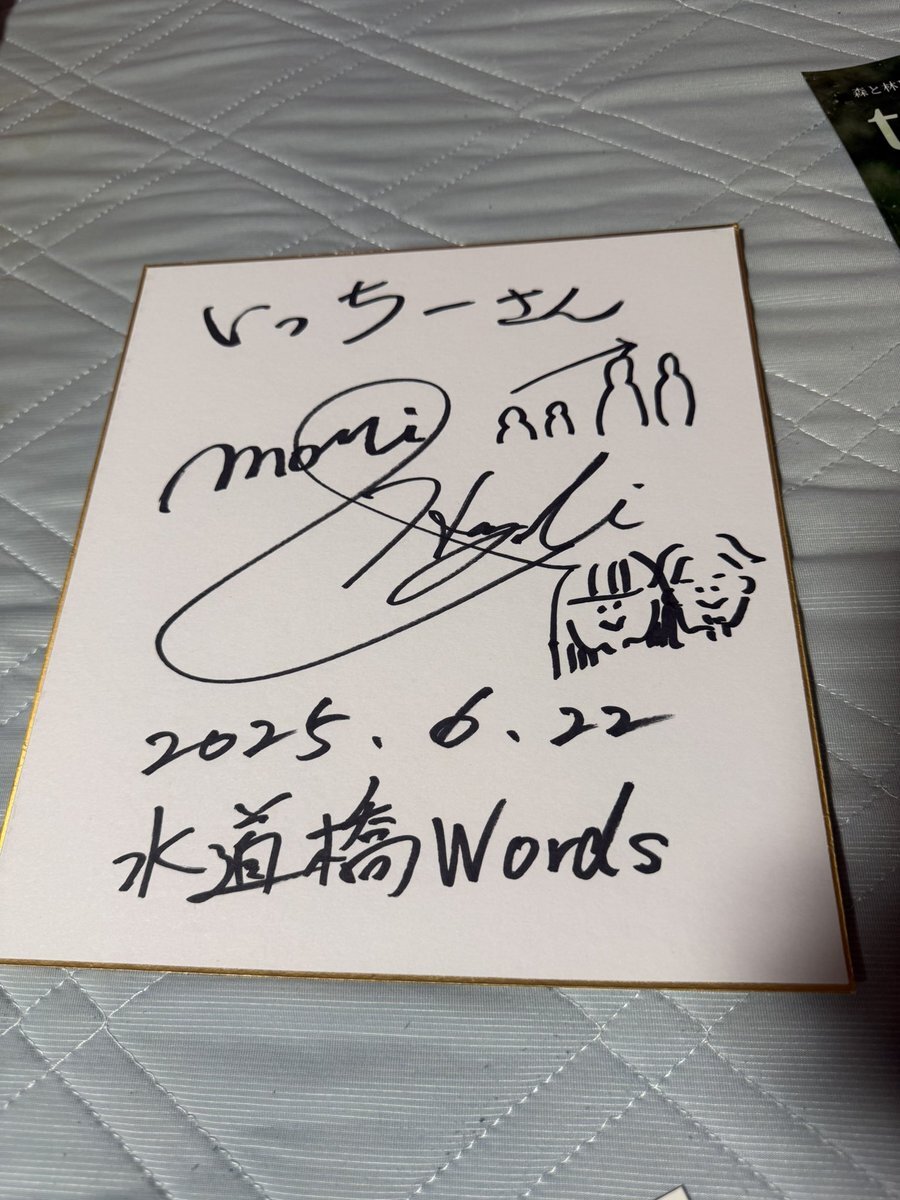 森と林
t
いっちーさん
moRi
Hayashi
2025.6.22
水道橋Words